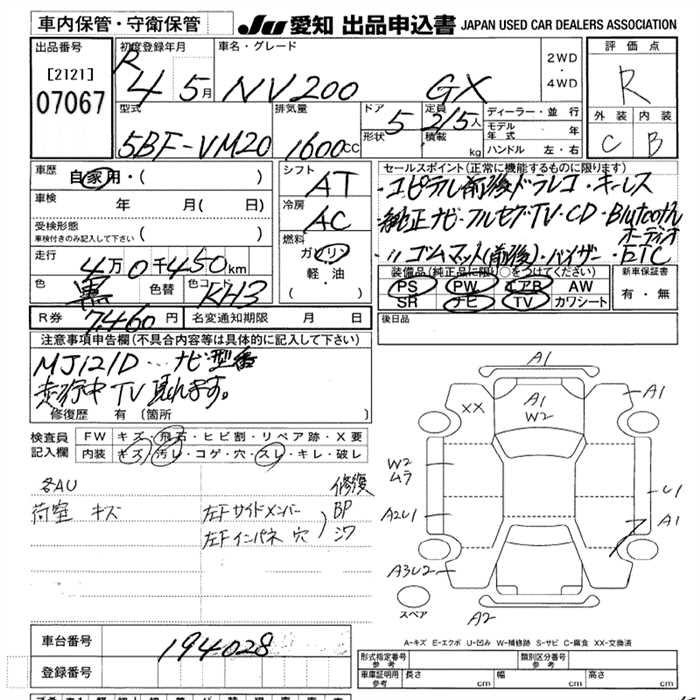 車内保管・守衛保管 JU 愛知 出品申込書 JAPAN USED CAR DEALERS ASSOCIATION
出品番号 [2121] 07067
初度登録年月 R4 5月
車名・グレード NV200 GX
2WD・4WD
評価点 R
外装 C 内装 B
型式 5BF-VM20
排気量 1600cc
ドア 5 形状
定員 2/5人 積載 kg
ディーラー・並行
モデル年式 年
ハンドル 左・右
車歴 自家用・( )
車検 年 月( 日)
受検形態 車検付きのみ記入して下さい ( )
走行 4万0千450km
色 黒 色替 色コード KH3
R券 7460円 名変通知期限 月 日
シフト AT
冷房 AC
燃料 ガソリン・軽油・( )
セールスポイント(正常に機能するものに限ります)
・エピテレし前後ドラレコ・キーレス
・純正ナビ・フルセグTV・CD・Blutooth オーディオ
・〃ゴムマット(前後)・バイザー・ETC
装備品(純正品に限り○をつけてください)
PS PW エアB AW
SR ナビ TV カワシート
新車保証書 有・無
後日品
注意事項申告欄(不具合内容等は具体的に記入して下さい)
MJ121D…ナビ型番
走行中TV見れます。
修復歴 有〔箇所 〕
検査員記入欄
FW キズ・飛石・ヒビ割・リペア跡・X要
内装 キズ・汚レ・コゲ・穴・スレ・キレ・破レ
各AU 修復
荷室 キズ 左Fサイドメンバー BP
左Fインパネ 穴 シワ
A1
XX A1 W2 A1
W2 ムラ
A2U1 U1
A1
A3U2
スペア A2
A-キズ E-エクボ U-凹み W-補修跡 S-サビ C-腐食 XX-交換済
車台番号 194028
登録番号
形式指定番号 参考 類別区分番号 参考
車庫証明用 参考 長さ cm 幅 cm 高さ cm